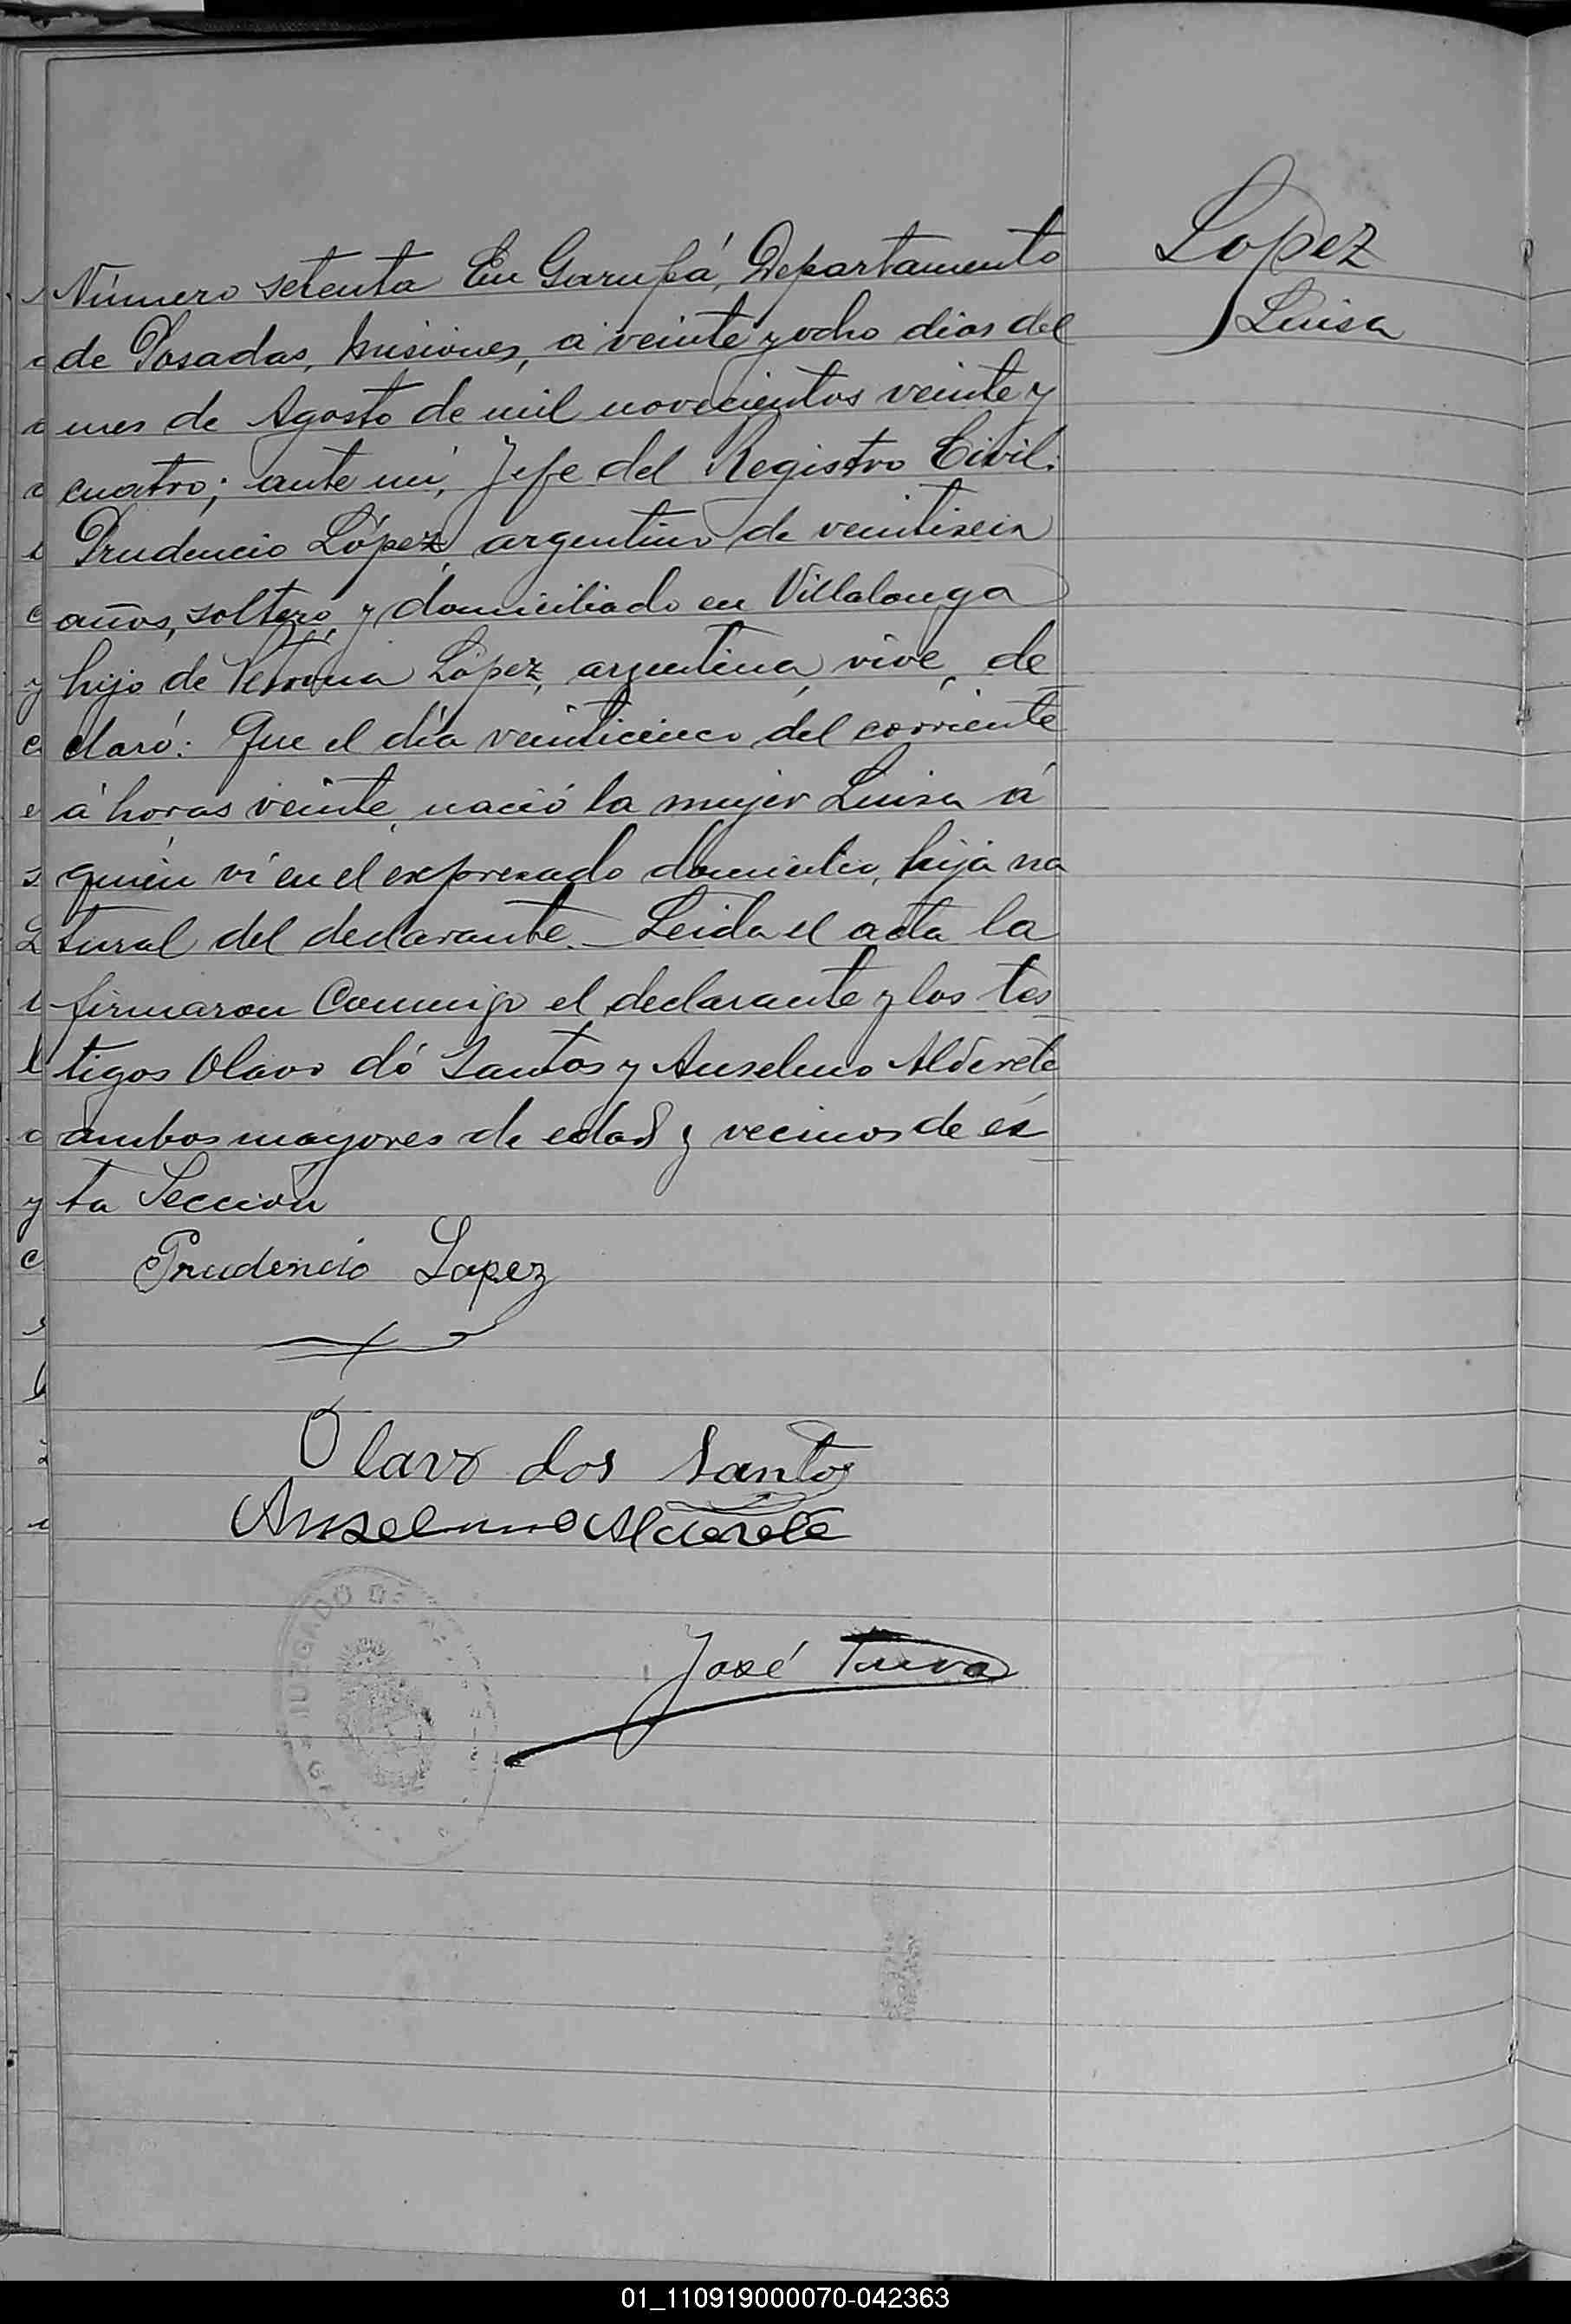 Lopez
Luisa
Número setenta En Garupá, Departamento
de Posadas, Misiones, a veinte y ocho dias del
mes de Agosto de mil novecientos veinte y
cuatro; ante mi, Jefe del Registro Civil:
Prudencio López, argentino de veintiseis
años, soltero, y domiciliado en Villalonga
hijo de López, argentina, vive, de
claró: Que el día veinticinco del corriente
á horas veinte, nació la mujer Luisa á
quién ví en el expresado domicilio, hija na
tural del declarante. Leida el acta la
firmaron Conmigo el declarante y los tes
tigos Olavo dó Santos y Anselmo Alderete
ambos mayores de edad y vecinos de és
ta Sección
Prudencio Lopez
Olavo dos Santos
Anselmo Alderete
José
JUZGADO DE
01_110919000070-042363